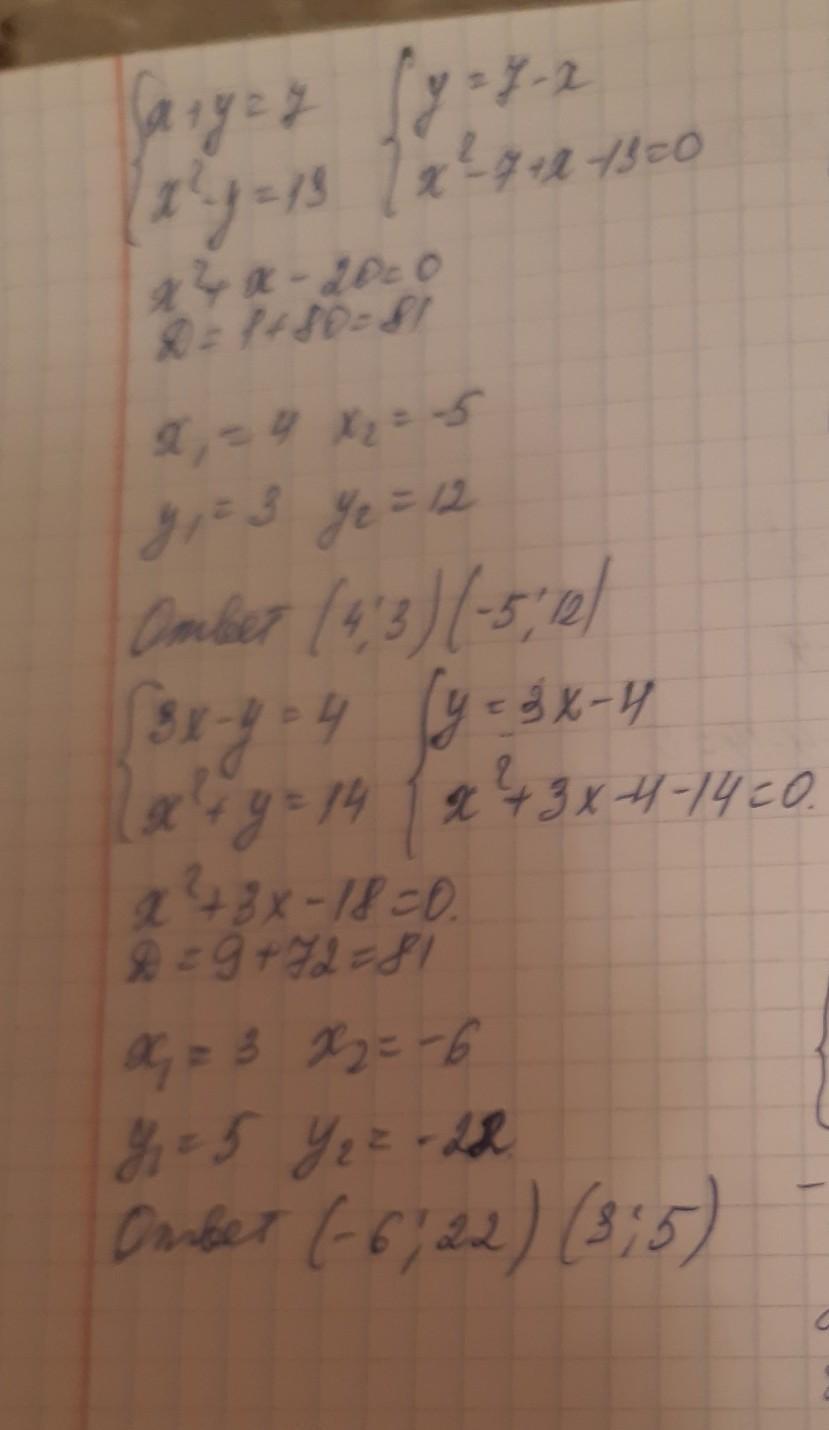 {x+y=7 {y=7-x
x²-y=13 x²-7+x-13=0
x²+x-20=0
D=1+80=81
x₁=4 x₂=-5
y₁=3 y₂=12
Ответ (4;3)(-5;12)
{3x-y=4 {y=3x-4
x²+y=14 x²+3x-4-14=0.
x²+3x-18=0.
D=9+72=81
x₁=3 x₂=-6
y₁=5 y₂=-22
Ответ (-6;22) (3;5)